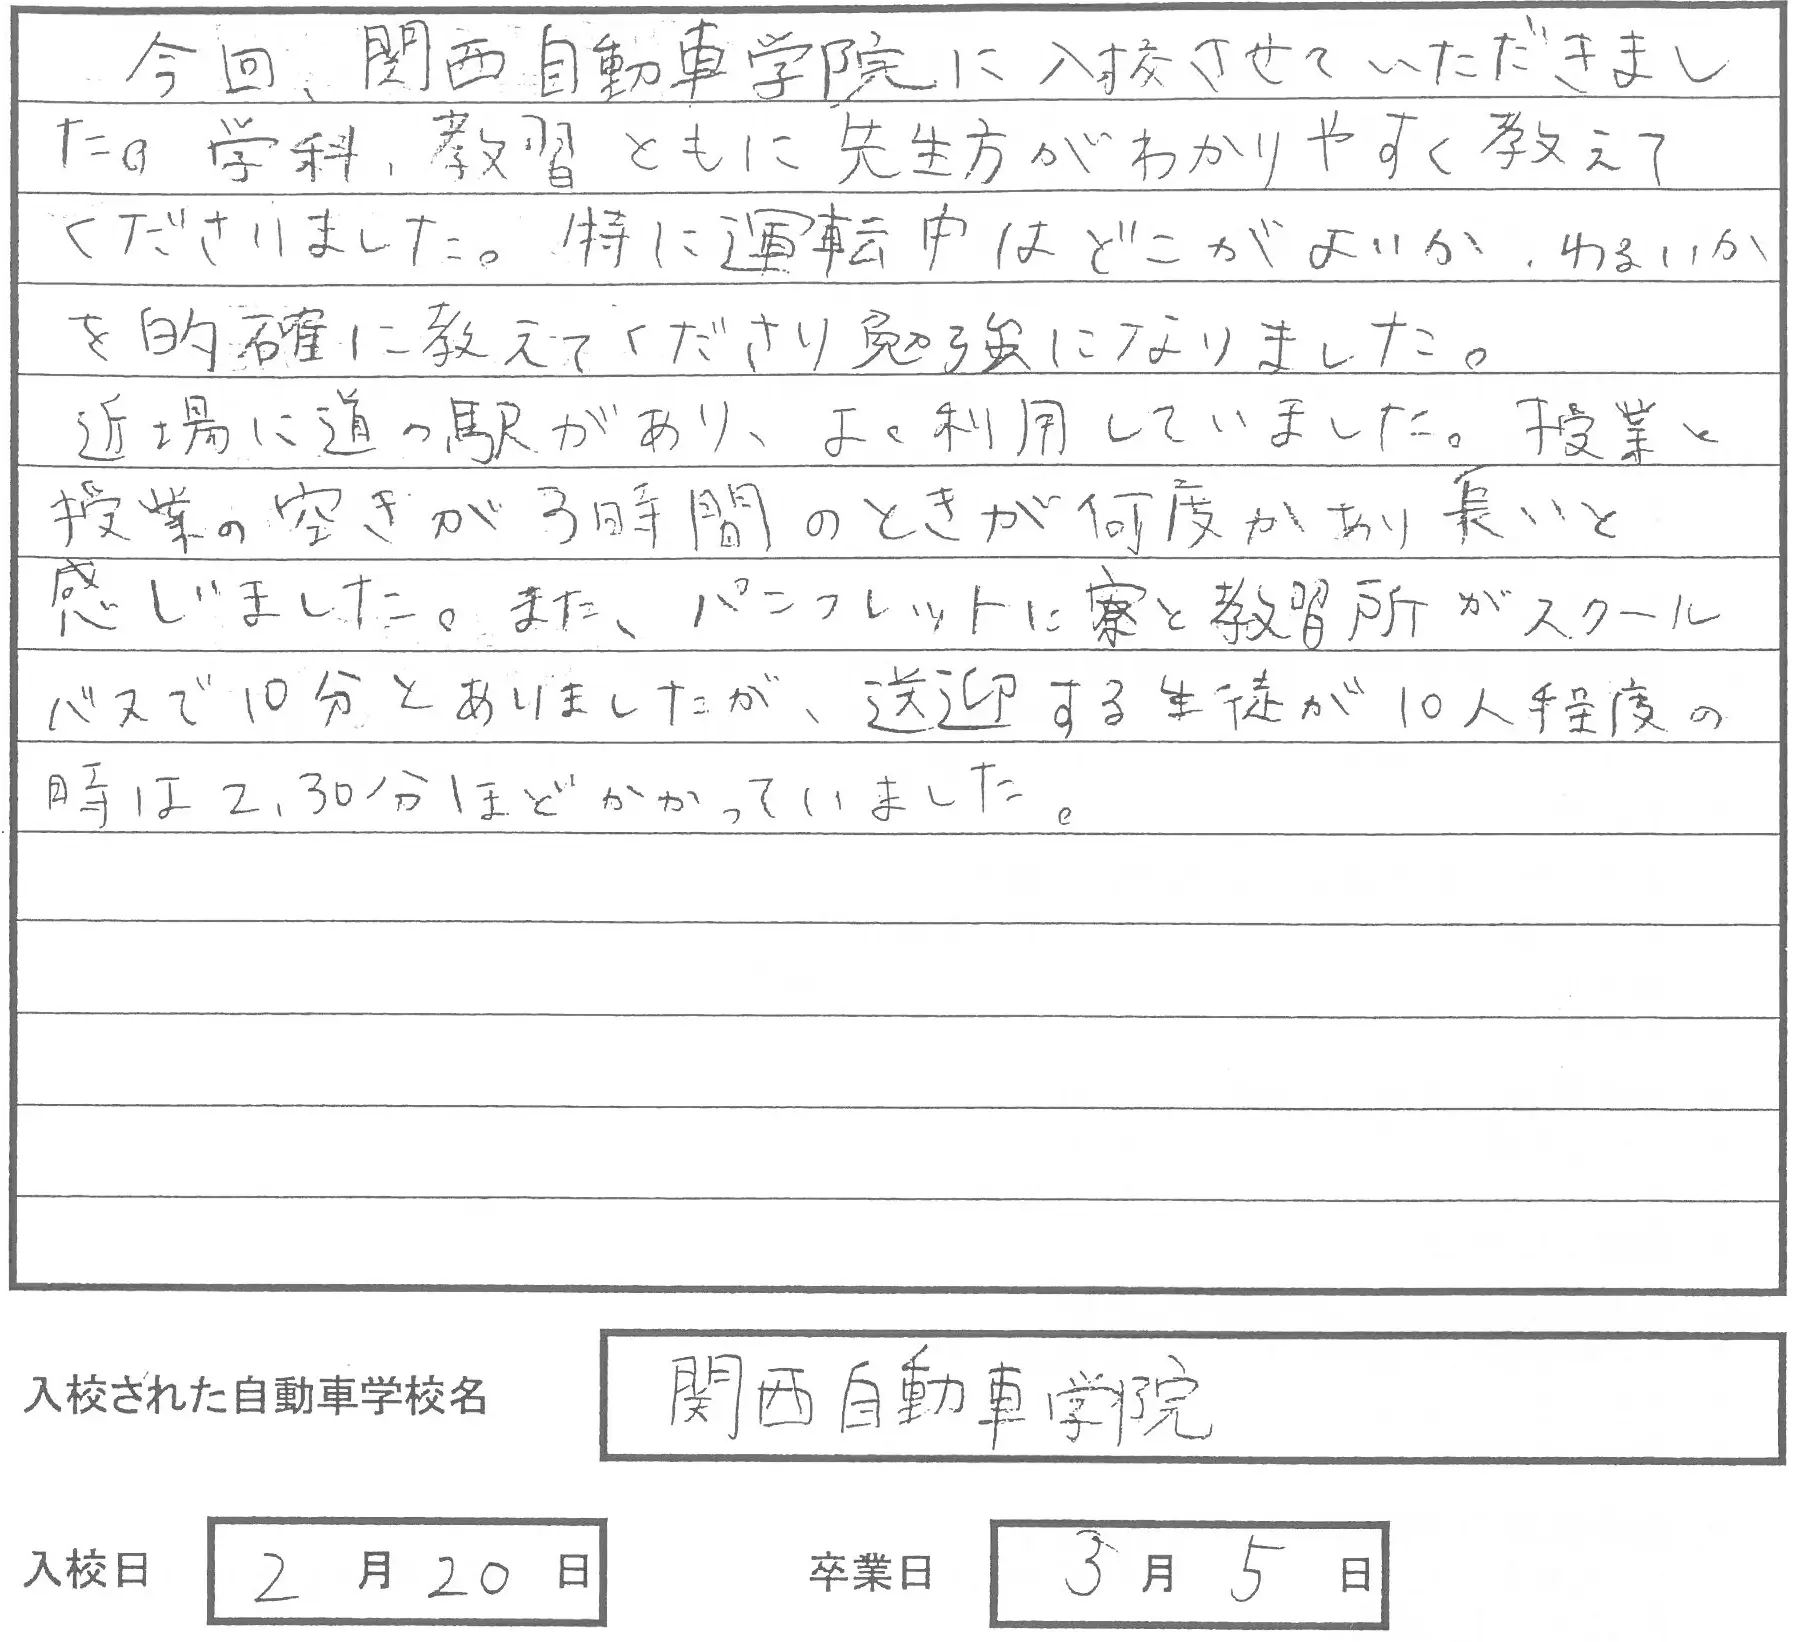 今回、関西自動車学院に入校させていただきまし
た。学科、教習ともに先生方がわかりやすく教えて
くださいました。特に運転中はどこがよいか、わるいか
を的確に教えてくださり勉強になりました。
近場に道の駅があり、よく利用していました。授業と
授業の空きが3時間のときが何度かあり長いと
感じました。また、パンフレットに寮と教習所がスクール
バスで10分とありましたが、送迎する生徒が10人程度の
時は2,30分ほどかかっていました。
入校された自動車学校名 関西自動車学院
入校日 2月20日 卒業日 3月5日